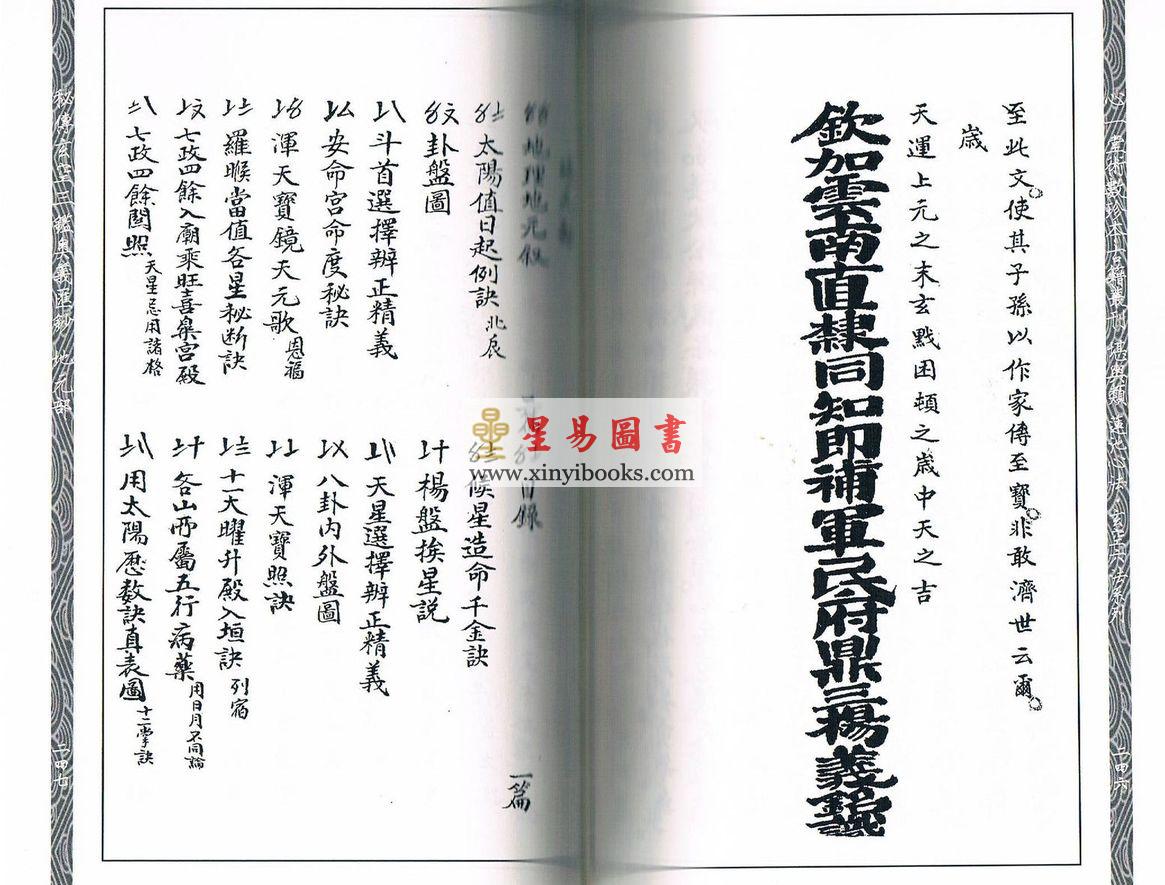 至此文使其子孫以作家傳至寶非敢濟世云爾
歲
天運上元之末玄戰困頓之歲中天之吉
欽加雲南直隸同知即補軍民府鼎三楊義
二四六
地理地元叙
目錄
一篇
太陽值日起例訣 北辰
候星造命千金訣
卦盤圖
楊盤挨星説
斗首選擇辨正精義
天星選擇辨正精義
安命宮命度秘訣
八卦内外盤圖
渾天寶鏡天元歌 恩福
渾天寶照訣
羅睺當值各星秘断訣
十一大曜升殿入垣訣 列宿
七政四餘入廟乘旺喜樂宮殿
各山所屬五行病藥 用日月不同論
七政四餘関照 天星忌用諸格
用太陽歷数訣真表圖 十二掌訣
秘傳玄空三鑑奥義匯鈔 地元部
二四七
星易圖書
www.xinyibooks.com